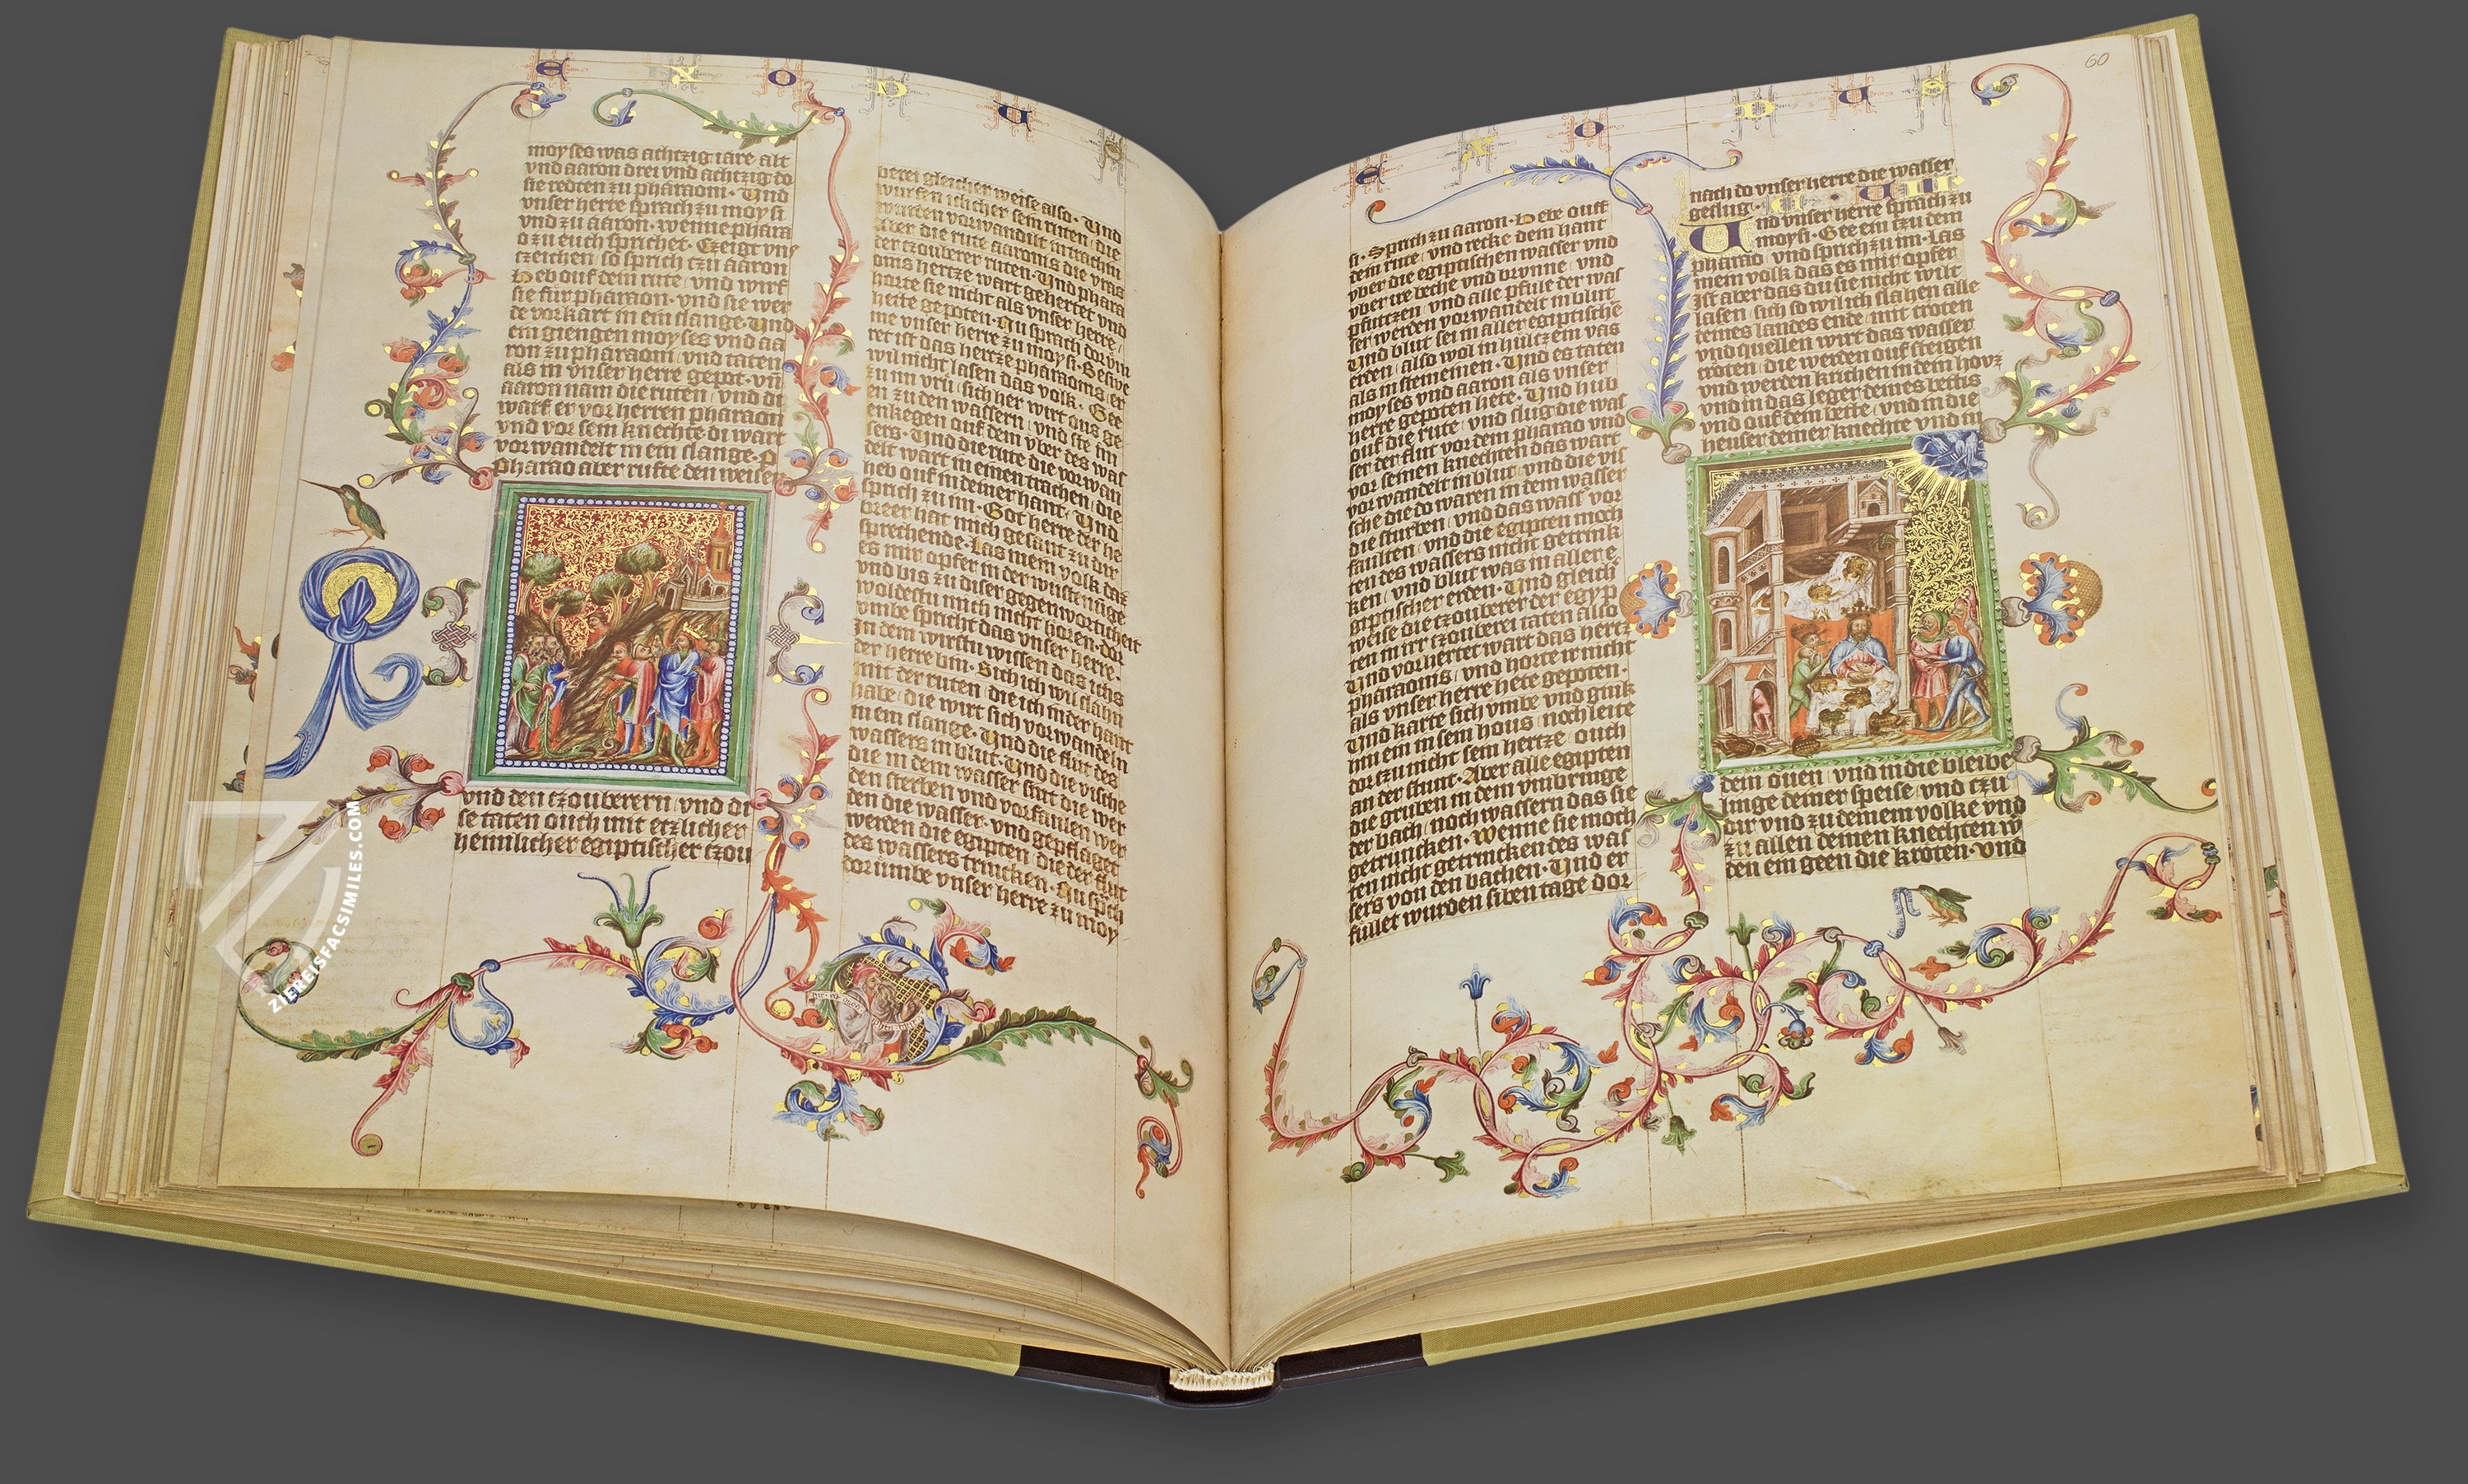 E X O D U S
moyses was achtzig iare alt
vnd aaron drei vnd achtzig do
sie redten zu pharaoni · Und
vnser herre sprach zu moysi
vnd zu aaron · wenne phara
o zu euch sprichet · Czeigt vns
tzeichen so sprich tzu aaron
Heb ouf dein rute vnd wirf
sie fur pharaon · vnd sie wer
de vorkart in ein slange · Und
ein giengen moyses vnd aa
ron zu pharaoni vnd taten
als in vnser herre gepot · vnd
aaron nam die ruten vnd di
warf er vor herren pharaon
vnd vor sein knechte di wart
vorwandelt in ein slange · D
pharao aber rufte den weisen
vnd den tzouberern vnd di
se taten ouch mit etzlicher
heimlicher egiptischer tzou
berei gleicher weise also · Und
wurfen itlicher sein ruten die
wurden vorwandilt in trachin
Aber die rute aaronis die vras
der tzouberer ruten · Und phara
onis hertze wart gehertet vnd
horte sie nicht als vnser herre
hette gepoten · Nu sprach dorum
me vnser herre zu moysi · Beswe
ret ist das hertze pharaonis er
wil nicht lasen das volk · Gee
zu im vru sich her wirt ous ge
en zu den wassern vnd ste im
enkegen ouf dem vber des was
sers · Und die rute die vorwan
delt wart in einen trachen die
heb ouf in deiner hant · Und
sprich zu im · Got herre der he
breer hat mich gesant zu dir
sprechende · Las mein volk daz
es mir opfer in der wustenunge
vnd bis zu diser gegenworticheit
woldestu mich nicht horen · dor
vmbe spricht das vnser herre ·
In dem wirstu wissen das ichs
der herre bin · Sich ich wil slahn
mit der ruten die ich in der hant
habe die wirt sich vorwandeln
in ein slange · Und die flut des
wassers in blut · Und die vische
die in dem wasser sint die wer
den sterben vnd vorfaulen wer
den die wasser · vnd gepflaget
werden die egipten die der flut
des wassers trincken · Nu sprich
dor umbe vnser herre zu moy
60
E X O D U S
si · Sprich zu aaron · Hebe ouff
dein rute vnd recke dein hant
vber die egiptischen wasser vnd
vber ire beche vnd brunne vnd
pfutzen vnd alle pfule der was
ser werden vorwandelt in blut
Und blut sei in aller egiptische
erden also wol in hultzein vas
als in steineinen · Und es taten
moyses vnd aaron als vnser
herre gepoten hete · Und hub
ouf die rute vnd slug die was
ser der flut vor dem pharao vnd
vor seinen knechten das wart
vorwandelt in blut vnd die vis
sche die do waren in dem wasser
die sturben vnd das wasser vor
faulten vnd die egipten moch
ten des wassers nicht getrink
ken vnd blut was in aller e
giptischer erden · Und gleich
weise die tzouberer der egyp
ten in irr tzouberei taten also
Und vorhertet wart das hertz
pharaonis vnd horte ir nicht
als vnser herre hete gepoten ·
Und karte sich vmbe vnd gink
hin ein in sein hous noch leite
dortzu nicht sein hertze ouch
an der stunt · Aber alle egipten
die gruben in dem vmbringe
der bach noch wassern das sie
getruncken · Wenne sie moch
ten nicht getrincken des was
sers von den bachen · Und er
fullet wurden siben tage dor
nach do vnser herre die wasser
geslug ·
Und vnser herre sprach zu
moysi · Gee ein tzu dem
pharao vnd sprich zu im · Las
mein volk das es mir opfer
Ist aber das du sie nicht wilt
lasen sich so wil ich slahen alle
deines landes ende mit croten
vnd quellen wirt das wasser
croten die werden ouf steigen
vnd werden krichen in dein hous
vnd in das leger deines bettis
vnd ouf dein bette vnd in die
heuser deiner knechte vnd in
dein ouen vnd in die bleibe
linge deiner speise vnd tzu
dir vnd zu deinem volke vnd
zu allen deinen knechten w
den ein geen die kroten · vnd
ZIEREISFACSIMILES.COM